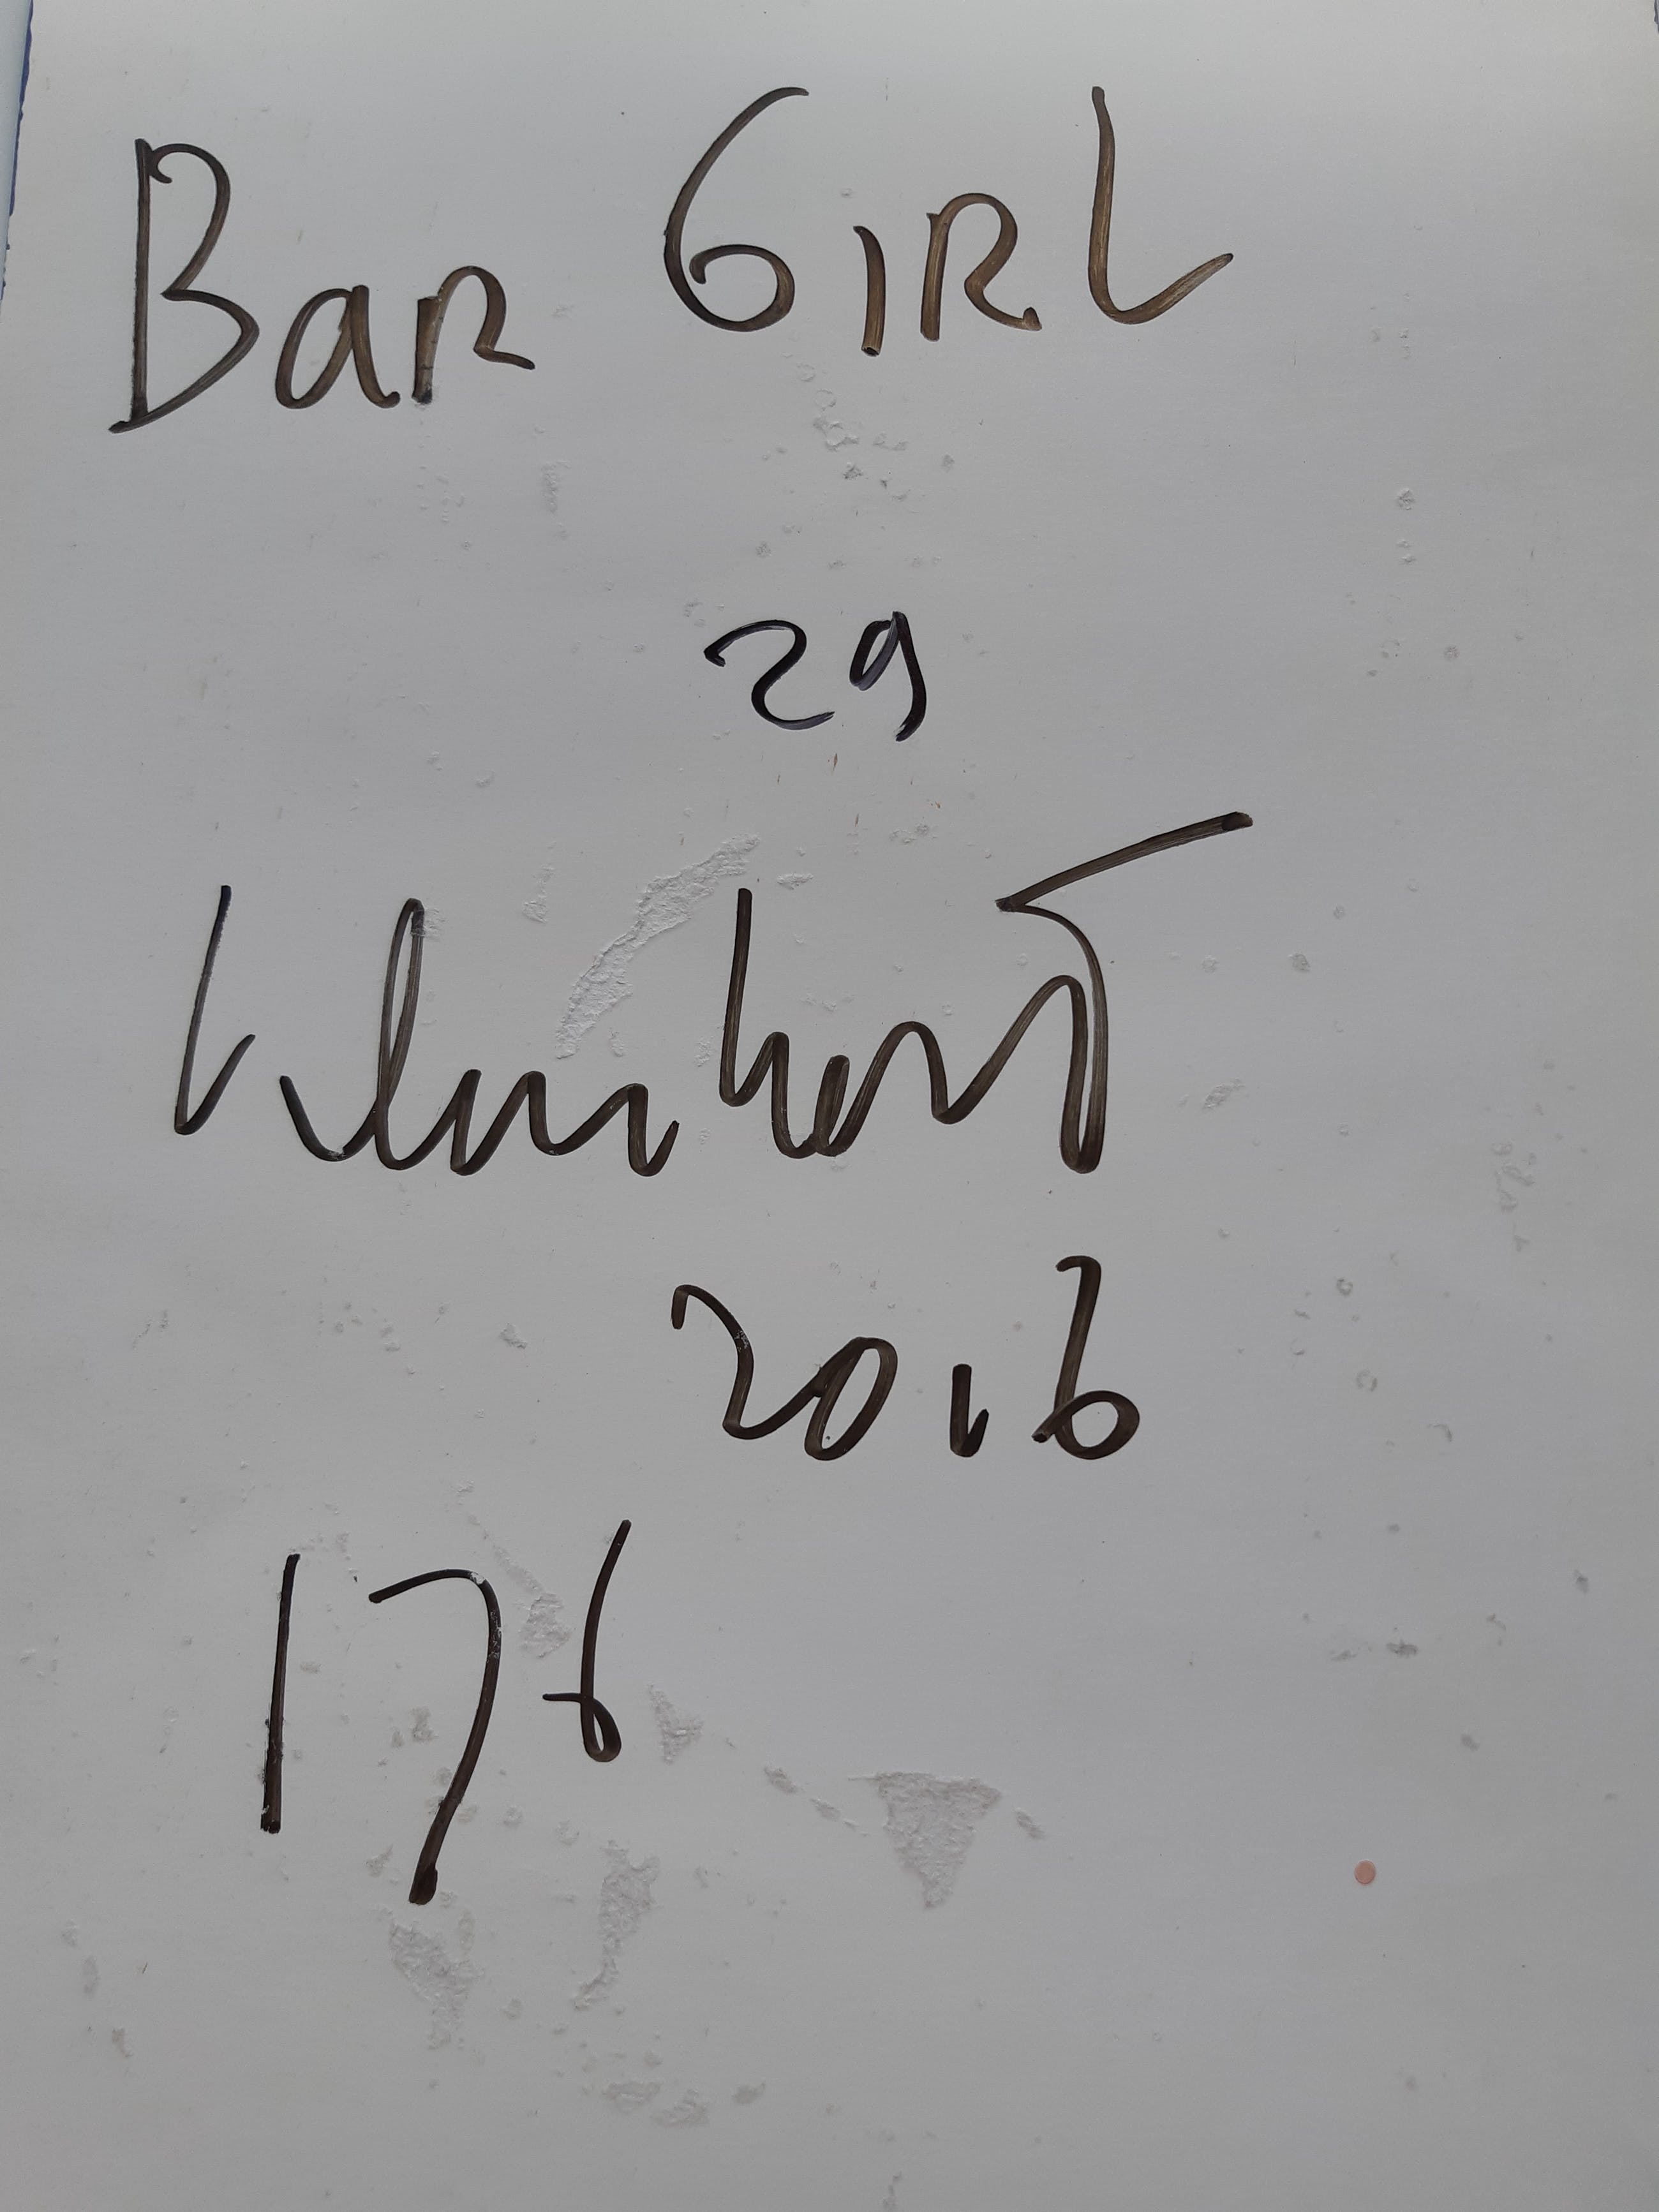 Bar GIRL
29
2016
176